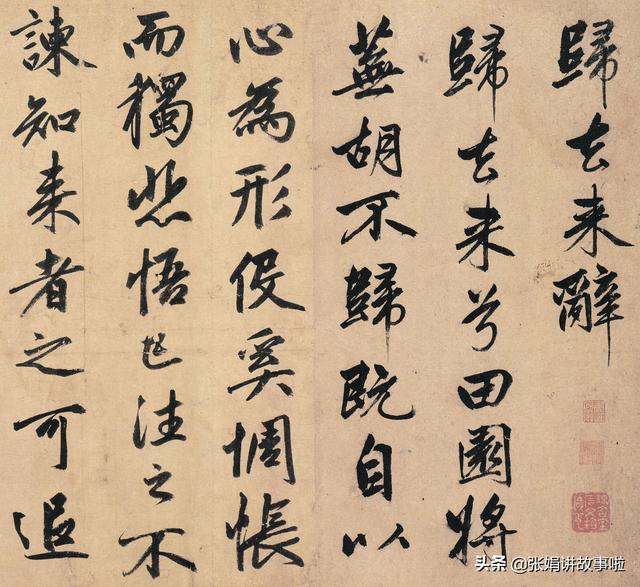 歸去来辭
歸去来兮田園將
蕪胡不歸既自以
心為形役奚惆悵
而獨悲悟已往之不
諫知来者之可追
头条 @张娟讲故事啦